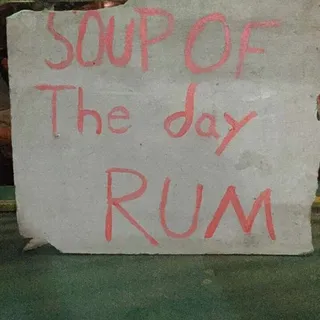 SOUP OF
The day
RUM